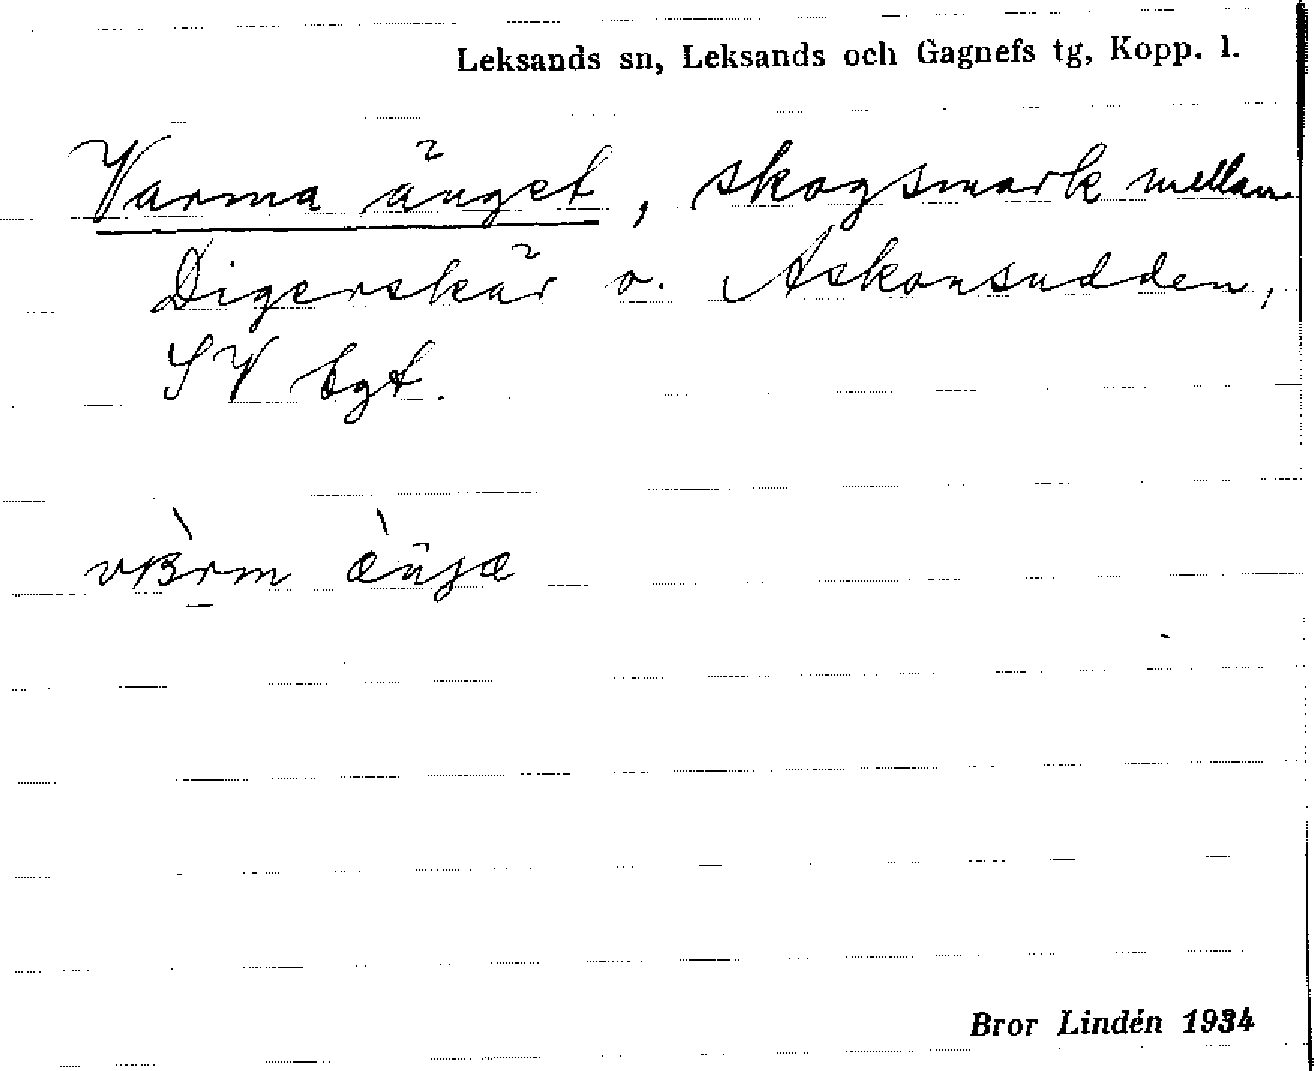 Leksands sn, Leksands och Gagnefs tg, Kopp. l.
Varma änget, skogsmark mellan
Digerskär o. Askonsudden,
SV bgt.
Bror Lindén 1934